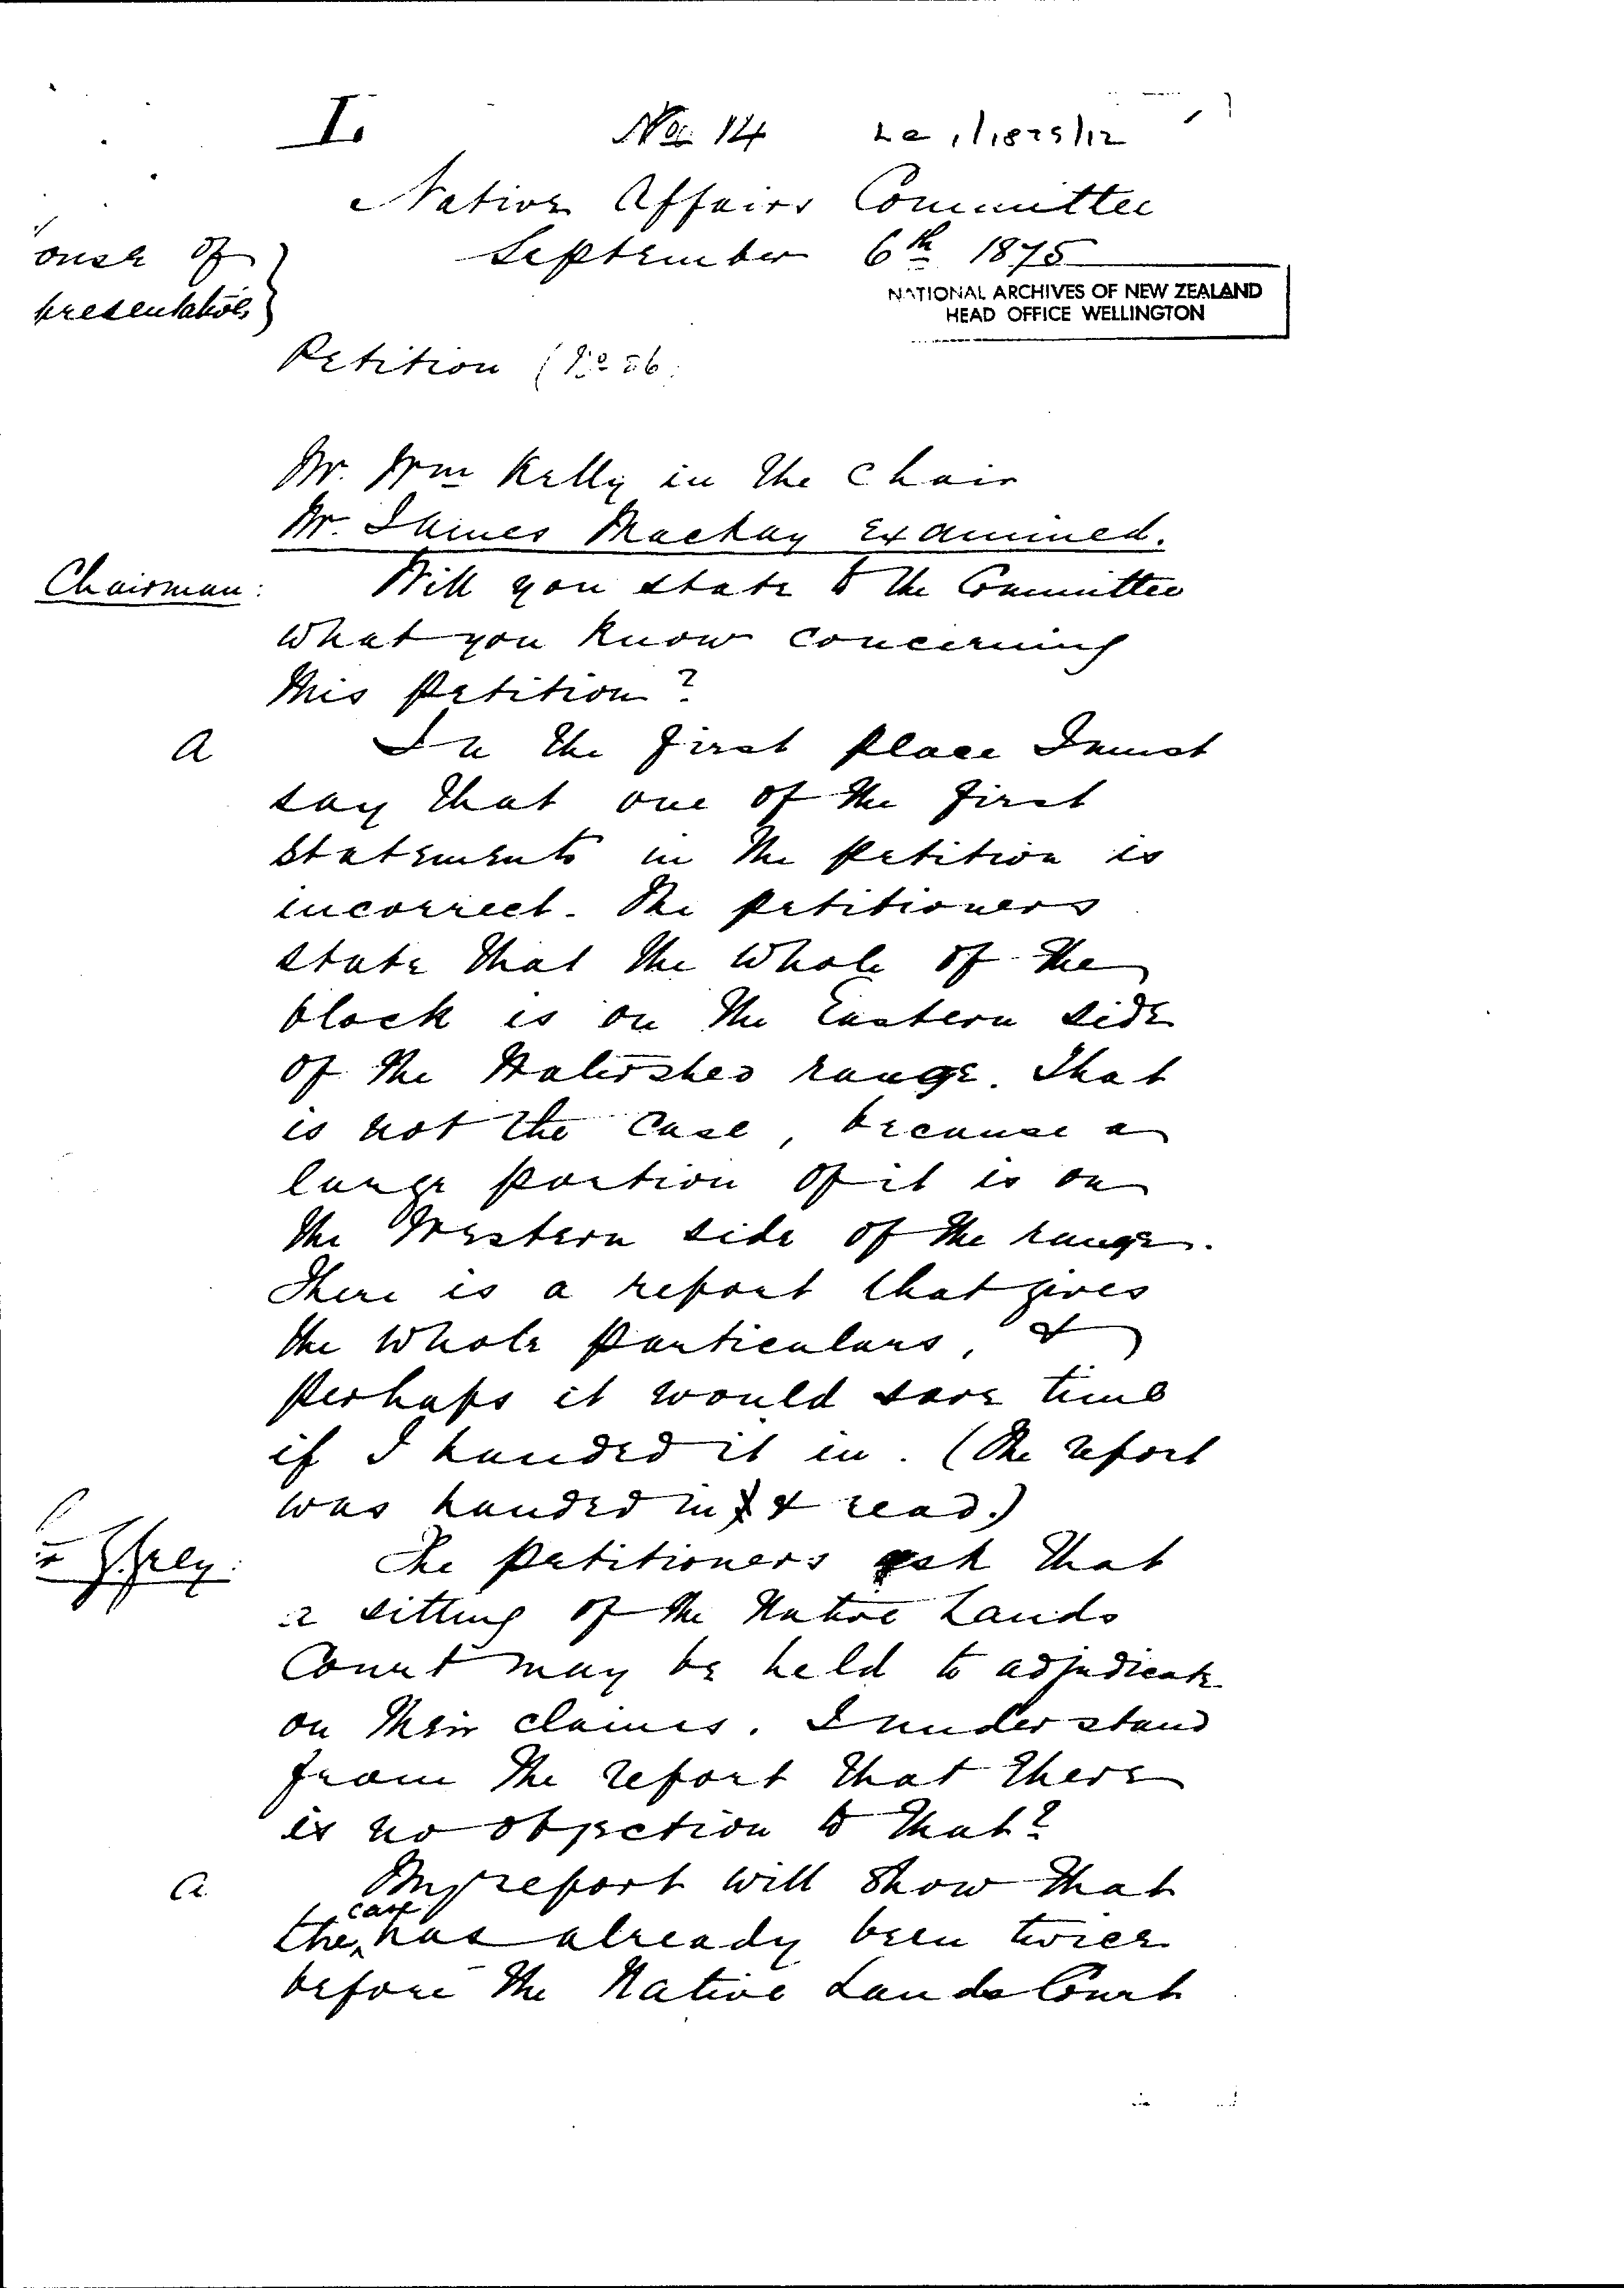 I.
No. 14 Le 1/1875/12
Native Affairs Committee
ouse of
presentatives
September 6th 1875
NATIONAL ARCHIVES OF NEW ZEALAND
HEAD OFFICE WELLINGTON
Petition (No 56
Mr. Wm Kelly in the Chair
Mr. James Mackay Examined.
Chairman: Will you state to the Committee
what you know concerning
this petition?
A In the first place I must
say that one of the first
statements in the petition is
incorrect. The petitioners
state that the whole of the
block is on the Eastern side
of the Watershed range. That
is not the case, because a
large portion of it is on
the Western side of the range.
There is a report that gives
the whole particulars, &
perhaps it would save time
if I handed it in. (The report
was handed in & read.)
G. Grey: The petitioners ask that
a sitting of the Native Lands
Court may be held to adjudicate
on their claims. I understand
from the report that there
is no objection to that?
A. My report will show that
the case has already been twice
before the Native Lands Court